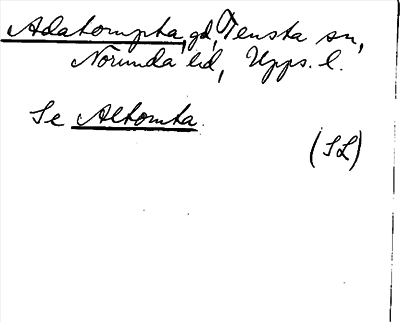 Adatompta, gd, Tensta sn,
Norunda hd, Upps. l.
Se Altomta.
(SL)